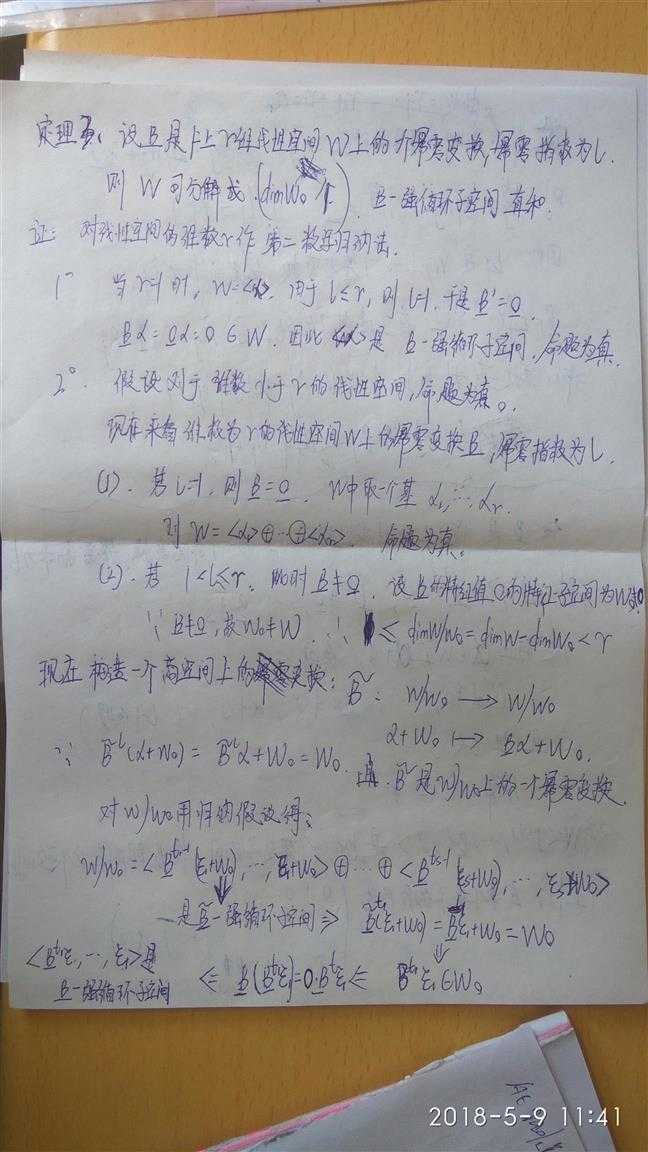 定理3. 设B是F上r维线性空间W上的一个幂零变换,幂零指数为l.
则W可分解成(dimW₀个) B-强循环子空间直和.
证: 对线性空间的维数r作第二数学归纳法.
1° 当r=1时, W=<α>. 由于l≤r, 则l=1. 于是B¹=0.
Bα=0α=0∈W. 因此<α>是 B-强循环子空间. 命题为真.
2°. 假设对于维数小于r的线性空间,命题为真。
现在来看维数为r的线性空间W上的幂零变换B,幂零指数为l.
(1). 若l=1, 则B=0. W中取一个基 α₁,…,αr.
则 W=<α₁>⊕…⊕<αr>. 命题为真。
(2). 若 1<l≤r. 此时B≠0. 设B的特征值0的特征子空间为W₀
∵ B≠0, 故W₀≠W. ∴ 1≤dimW/W₀=dimW-dimW₀<r
现在构造一个商空间上的变换: B̃: W/W₀ → W/W₀
α+W₀ ↦ Bα+W₀.
∵ B̃ˡ(α+W₀)=B̃ˡα+W₀=W₀. 且 B̃是W/W₀上的一个幂零变换.
对W/W₀用归纳假设得:
W/W₀=<B̃^{t₁-1}(ξ₁+W₀),…,ξ₁+W₀>⊕…⊕<B̃^{ts-1}(ξs+W₀),…,ξs+W₀>
是B̃-强循环子空间⇒ B̃^{t₁}(ξ₁+W₀)=B^{t₁}ξ₁+W₀=W₀
<B^{t₁}ξ₁,…,ξ₁>是
B-强循环子空间 ⇐ B(B^{t₁}ξ₁)=0·B^{t₁}ξ₁ ⇐ B^{t₁}ξ₁∈W₀
2018-5-9 11:41